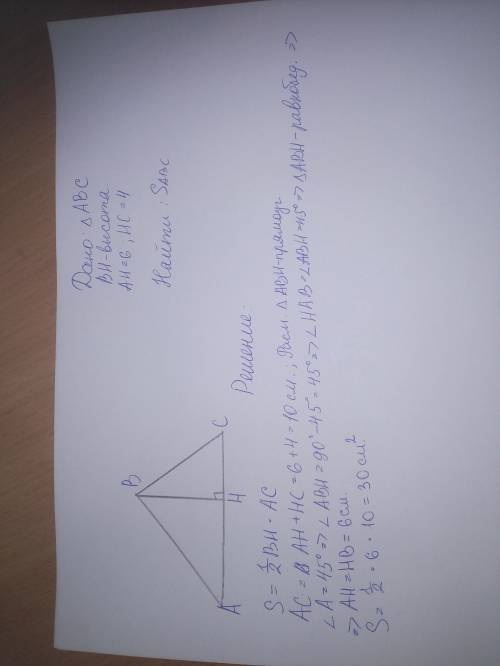 Дано: △ABC
BH-высота
AH=6; HC=4
Найти: SABC
B
A
H
C
Решение:
S = 1/2 BH · AC
AC = AH + HC = 6+4 = 10 см.; Расм △ABH-прямоуг.
∠A=45° => ∠ABH = 90°-45° = 45° => ∠HAB = ∠ABH=45° => △ABH-равнобед. =>
=> AH=HB = 6 см.
S = 1/2 · 6 · 10 = 30 см²